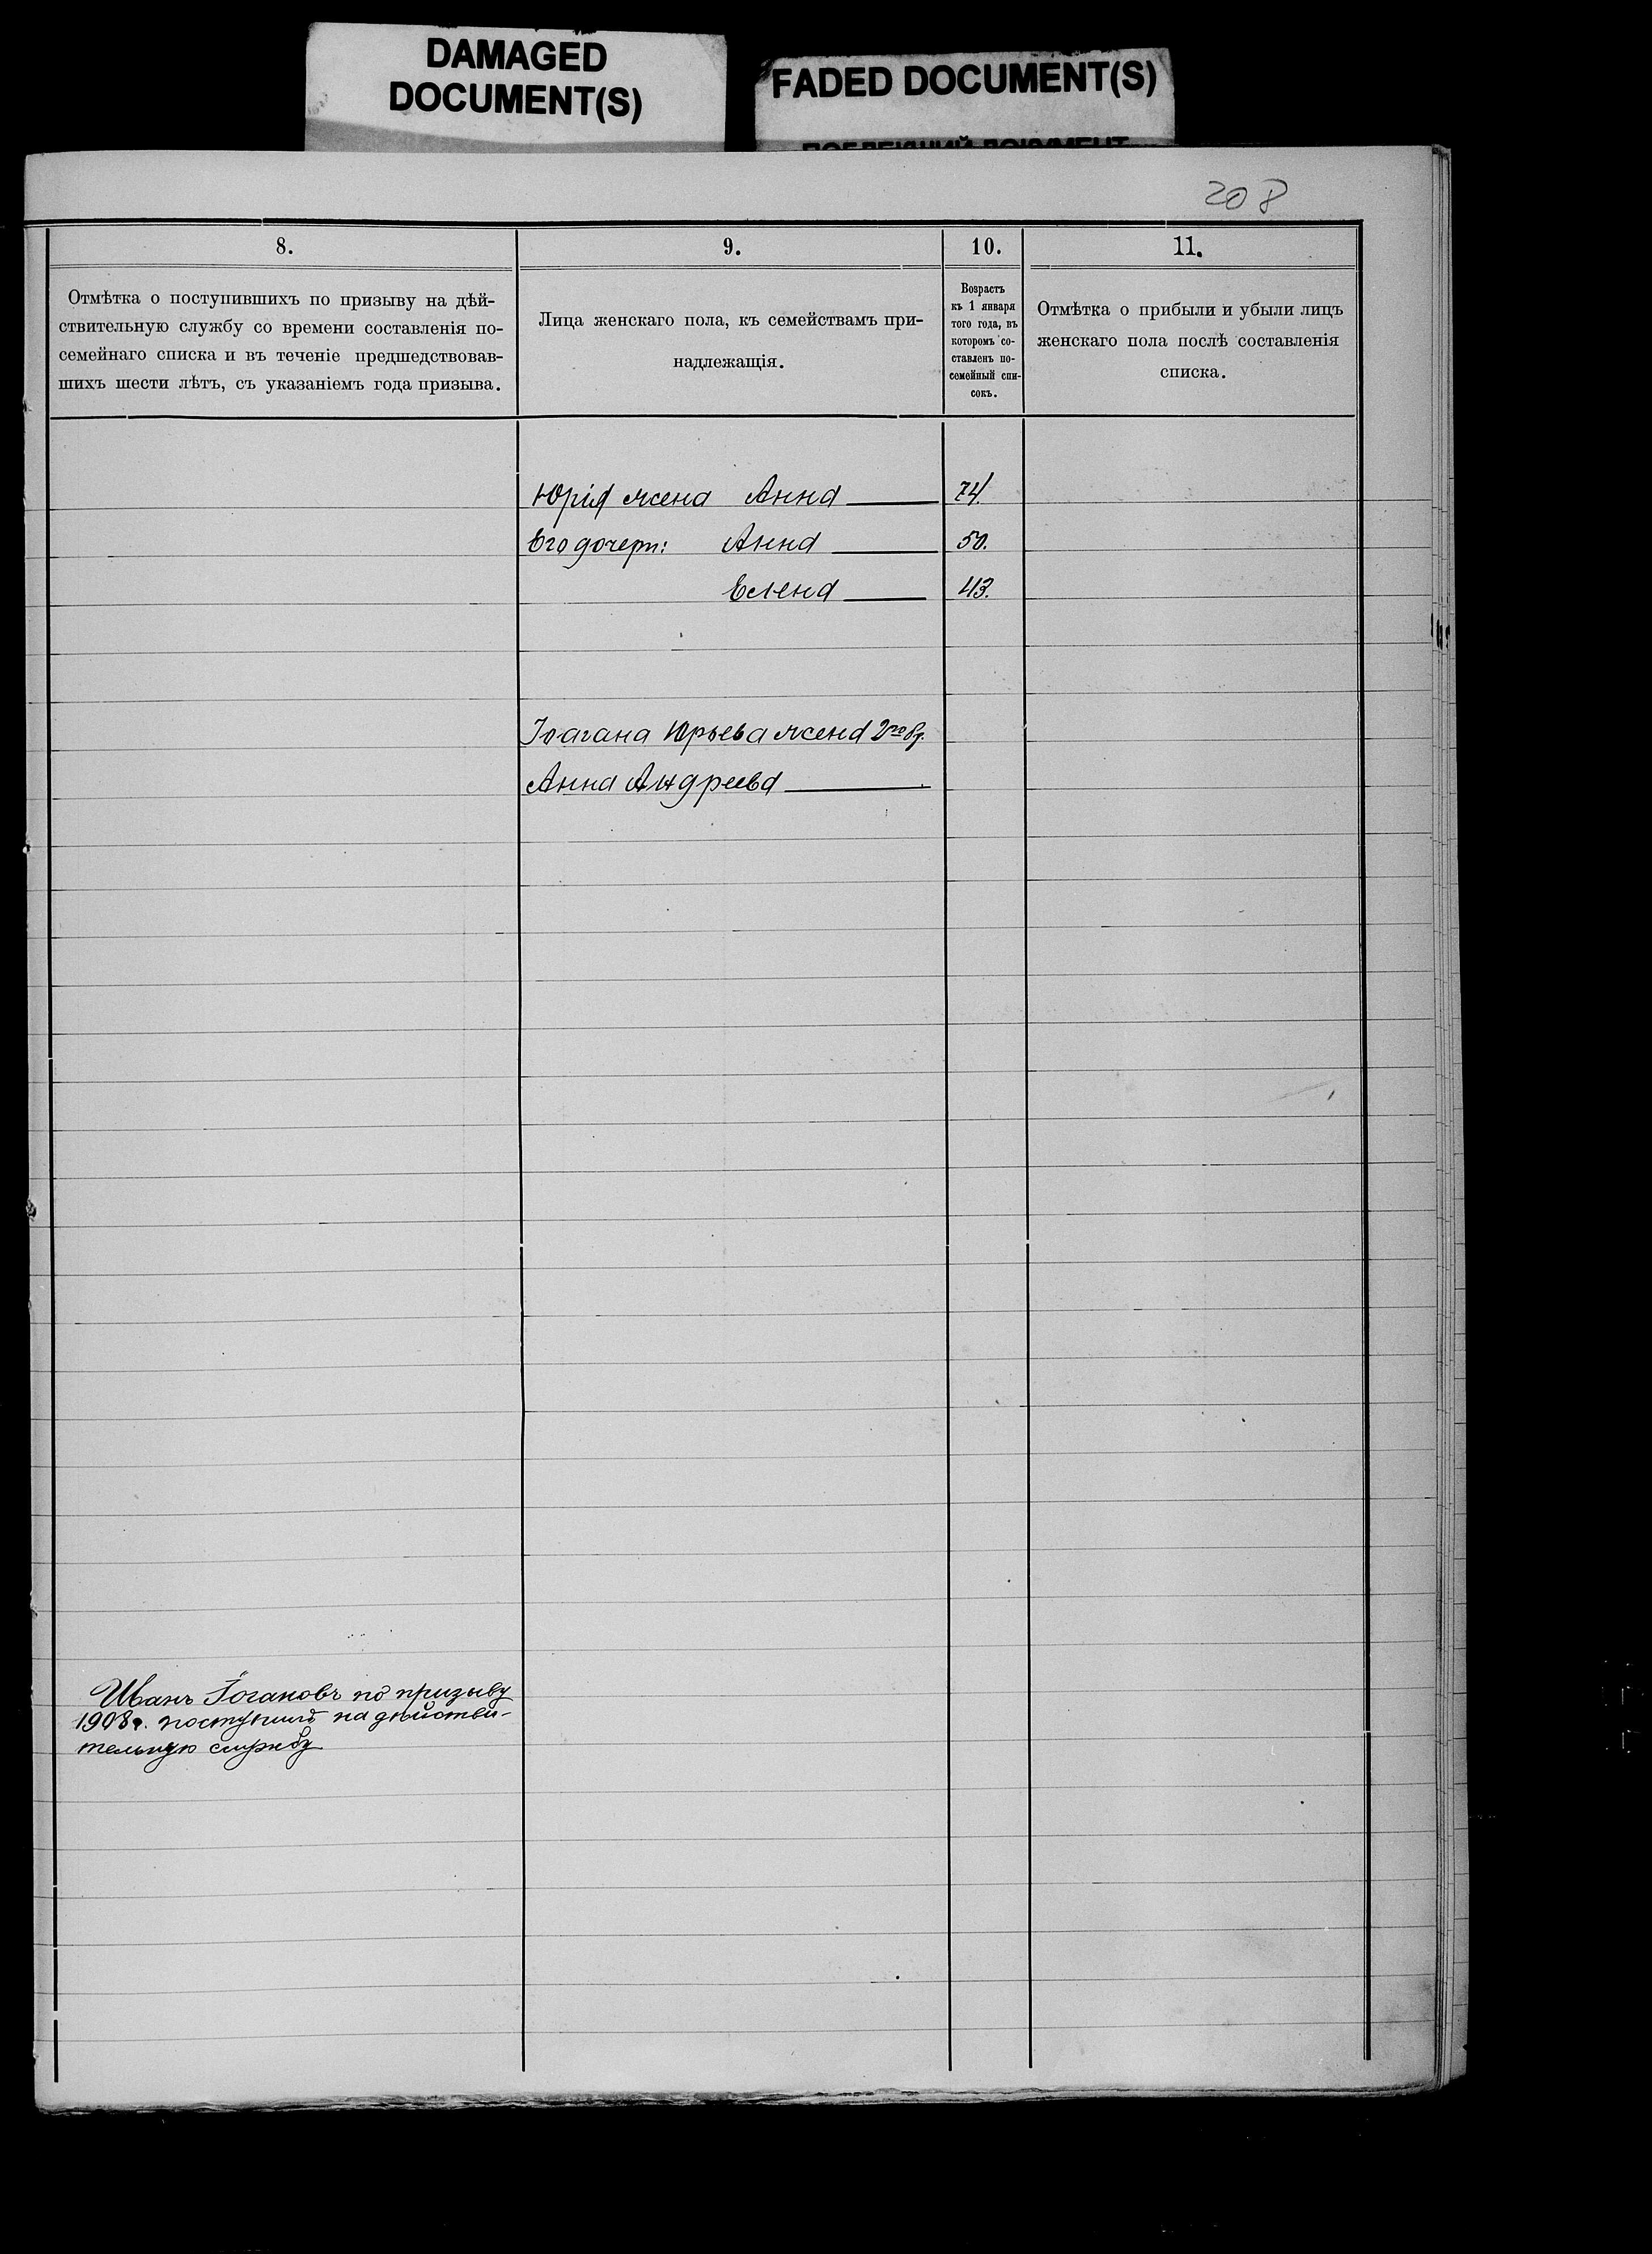 DAMAGED
DOCUMENT(S)
FADED DOCUMENT(S)
208
8.
Отмѣтка о поступившихъ по призыву на дѣй-
ствительную службу со времени составленія по-
семейнаго списка и въ теченіе предшедствовав-
шихъ шести лѣтъ, съ указаніемъ года призыва.
9.
Лица женскаго пола, къ семействамъ при-
надлежащія.
10.
Возрастъ
къ 1 января
того года, въ
которомъ со-
ставленъ по-
семейный спи-
сокъ.
11.
Отмѣтка о прибыли и убыли лицъ
женскаго пола послѣ составленія
списка.
Юрія жена Анна 74.
Его дочери: Анна 50.
Елена 43.
Іоагана Юрьева жена 2го бр.
Анна Андреева
Иванъ Іогановъ по призыву
1908 г. поступилъ на дѣйстви-
тельную службу